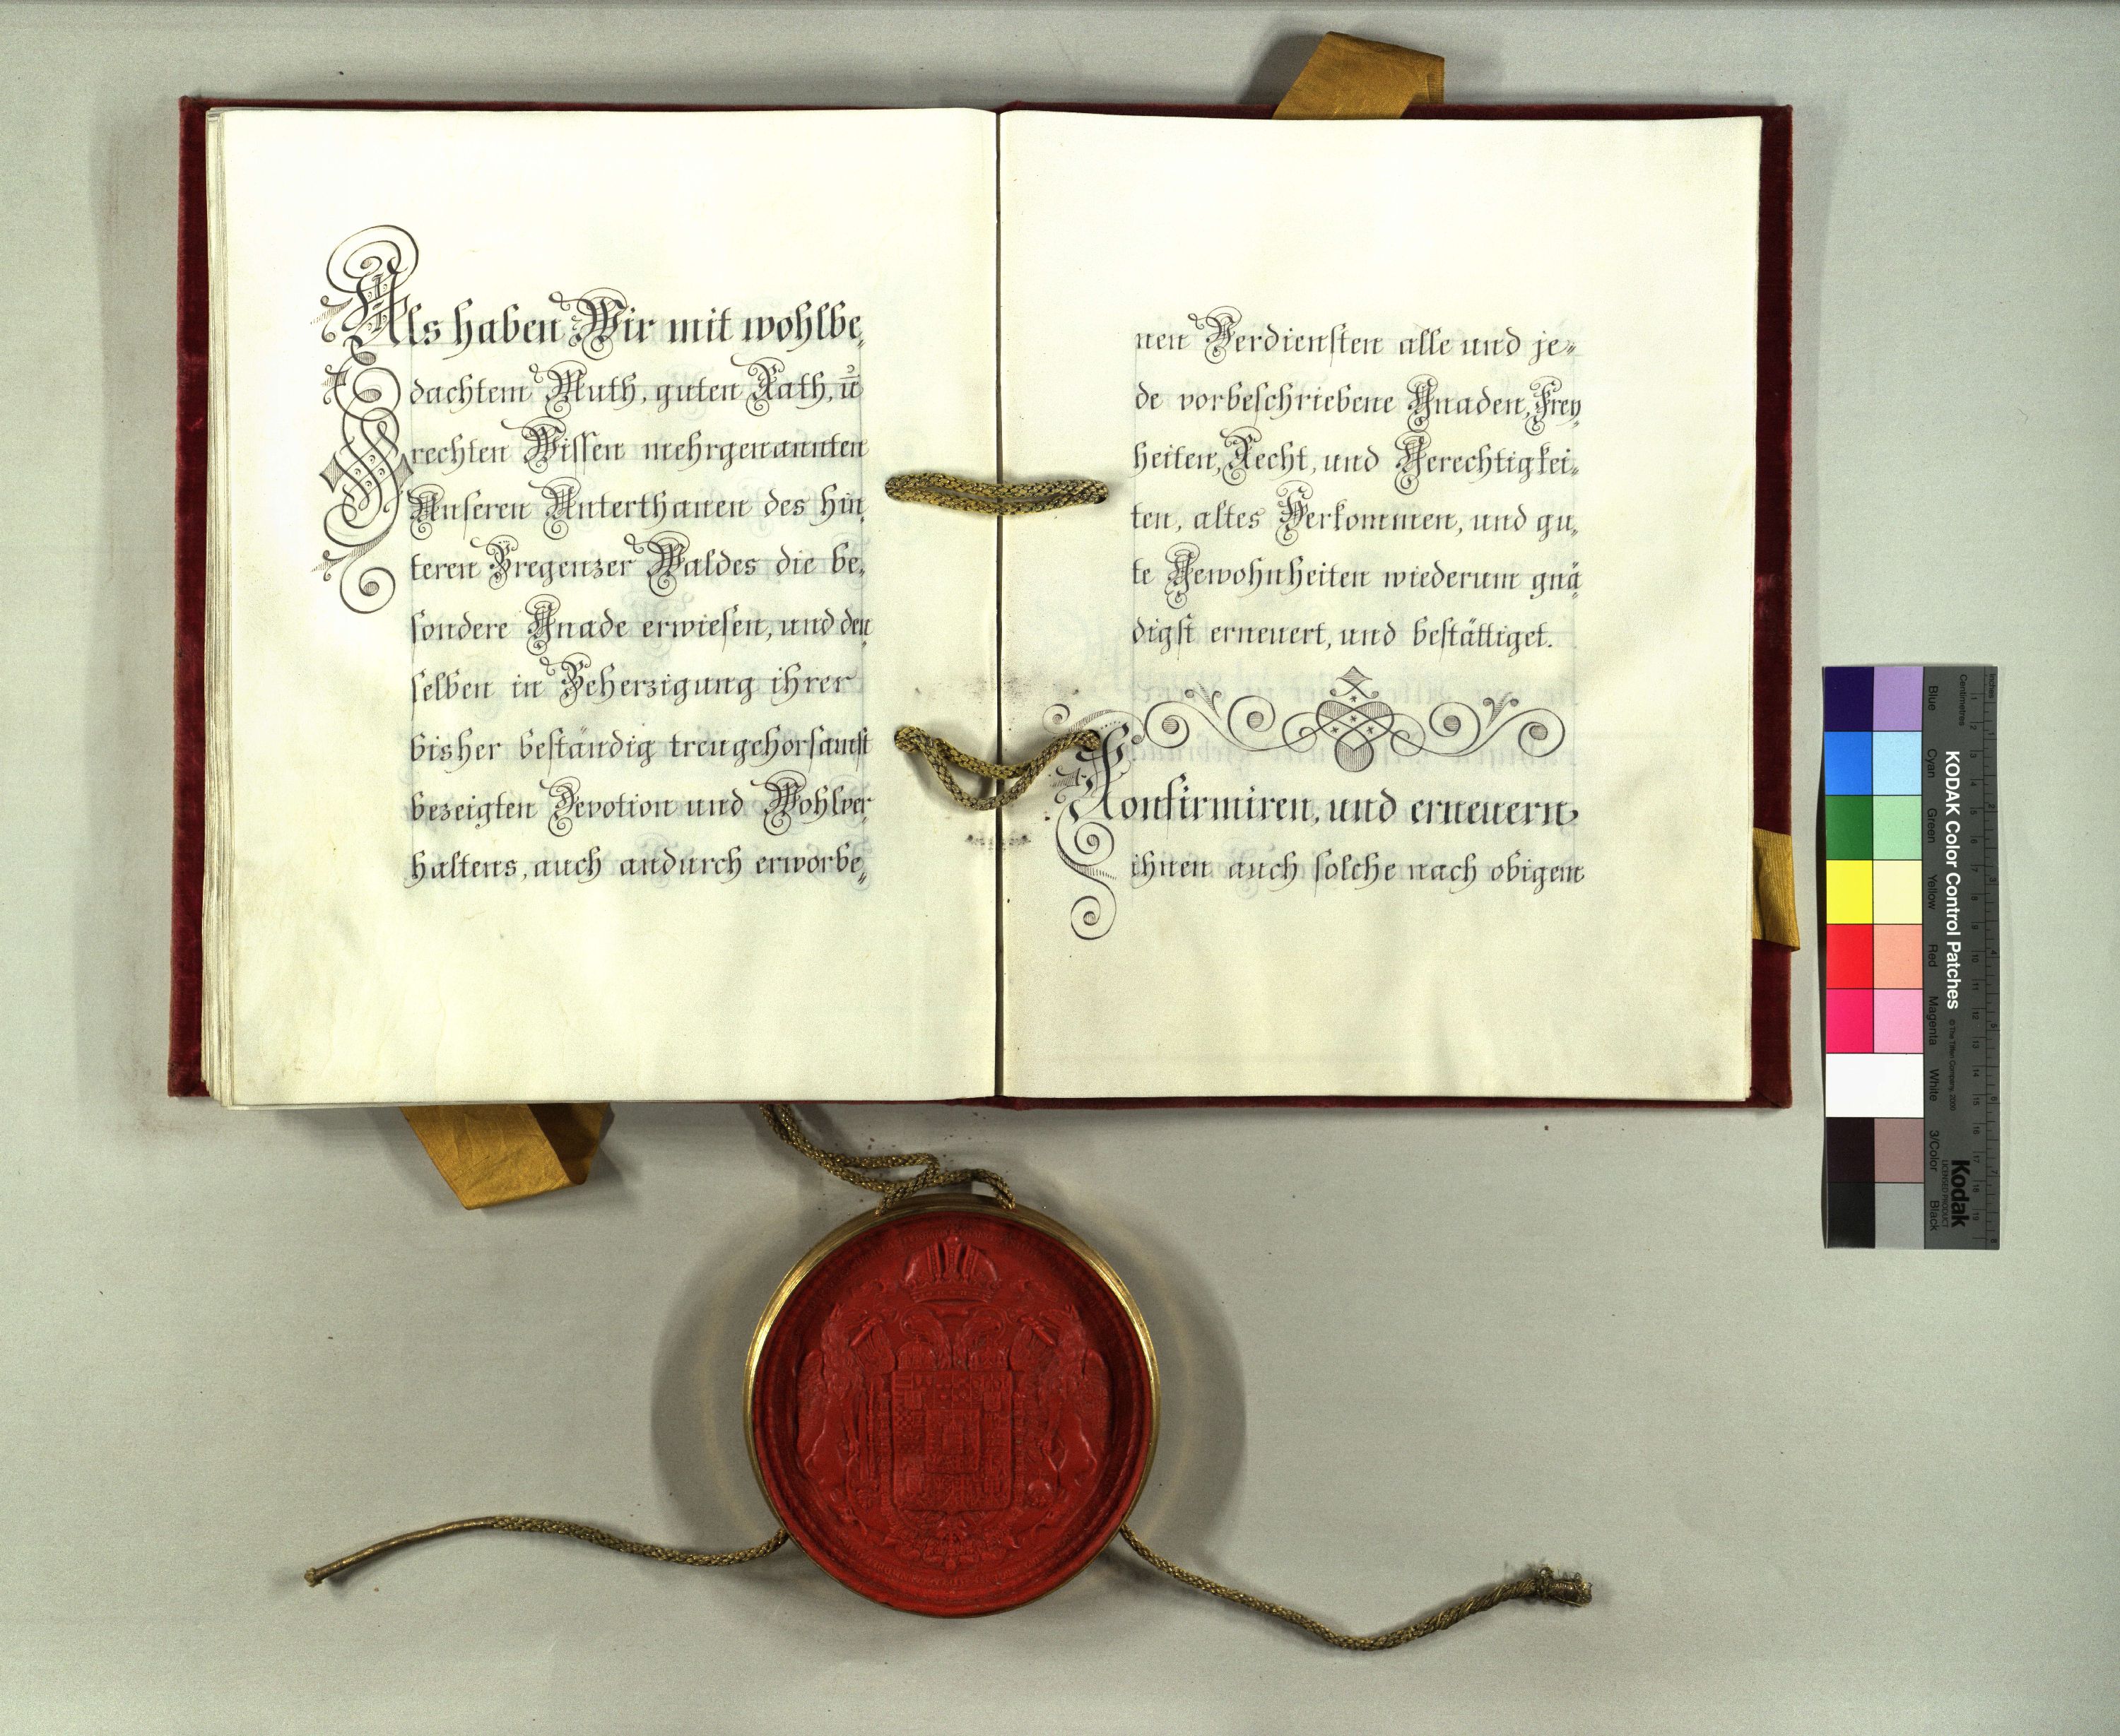 Als haben Wir mit wohlbe„
dachtem Muth, guten Rath, ū
rechten Wissen mehrgenannten
Unseren Unterthanen des Hin„
teren Bregenzer Waldes die be„
sondere Gnade erwiesen, und den
selben in Beherzigung ihrer
bisher beständig treugehorsamst
bezeigten Devotion und Wohlver„
haltens, auch andurch erworbe„
nen Verdiensten alle und je„
de vorbeschriebene Gnaden, Frey„
heiten, Recht, und Gerechtigkei„
ten, altes Herkommen, und gu„
te Gewohnheiten wiederum gnä„
digst erneuert, und bestättiget.
Konfirmiren, und erneuern
ihnen auch solche nach obigem
KODAK Color Control Patches
©The Tiffen Company, 2000
Kodak
LICENSED PRODUCT
Inches
Centimetres
Blue
Cyan
Green
Yellow
Red
Magenta
White
3/Color
Black